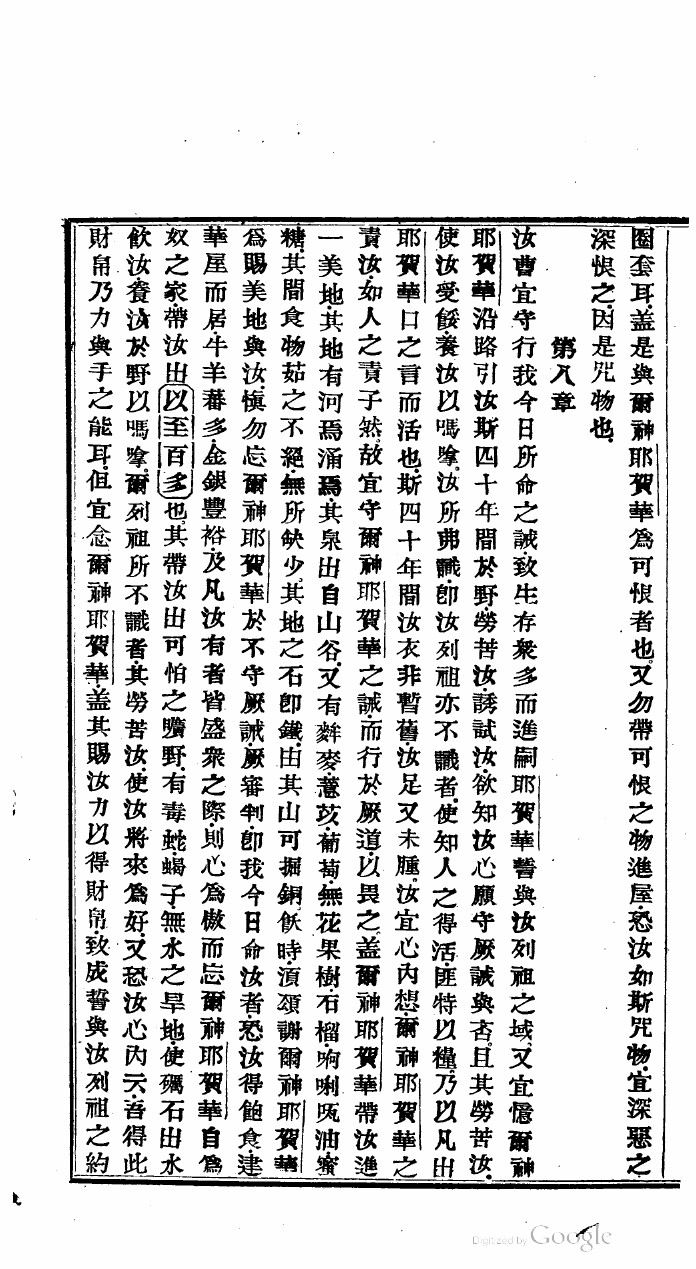 圈套耳.蓋是與爾神耶賀華爲可恨者也.又勿帶可恨之物進屋.恐汝如斯咒物.宜深惡之
深恨之.因是咒物也.
第八章
汝曹宜守行我今日所命之誡.致生存衆多而進嗣耶賀華誓與汝列祖之域.又宜憶爾神
耶賀華沿路引汝斯四十年間於野.勞苦汝.誘試汝.欲知汝心願守厥誡與否.且其勞苦汝.
使汝受餒.養汝以嗎嗱.汝所弗識.卽汝列祖亦不識者.使知人之得活.匪特以糧.乃以凡出
耶賀華口之言而活也.斯四十年間汝衣非暫舊.汝足又未腫.汝宜心內想.爾神耶賀華之
責汝.如人之責子然.故宜守爾神耶賀華之誡.而行於厥道.以畏之.蓋爾神耶賀華帶汝進
一美地.其地有河焉.涌焉.其泉出自山谷.又有麰麥.薏苡.葡萄.無花果樹.石榴.㖠唎㕧油.蜜
糖.其間食物茹之不絕.無所缺少.其地之石卽鐵.由其山可掘銅.飫時.湏頌謝爾神耶賀華
爲賜美地與汝.愼勿忘爾神耶賀華.於不守厥誡.厥審判.卽我今日命汝者.恐汝得飽食.建
華屋而居.牛羊蕃多.金銀豐裕.及凡汝有者皆盛衆之際.則心爲傲而忘爾神耶賀華.自爲
奴之家帶汝出以至百多也.其帶汝出可怕之曠野.有毒蛇.蝎子.無水之旱地.使礪石出水
飲汝.養汝於野以嗎嗱.爾列祖所不識者.其勞苦汝.使汝將來爲好.又恐汝心內云.吾得此
財帛乃力與手之能耳.但宜念爾神耶賀華.蓋其賜汝力以得財帛.致成誓與汝列祖之約
Digitized by Google